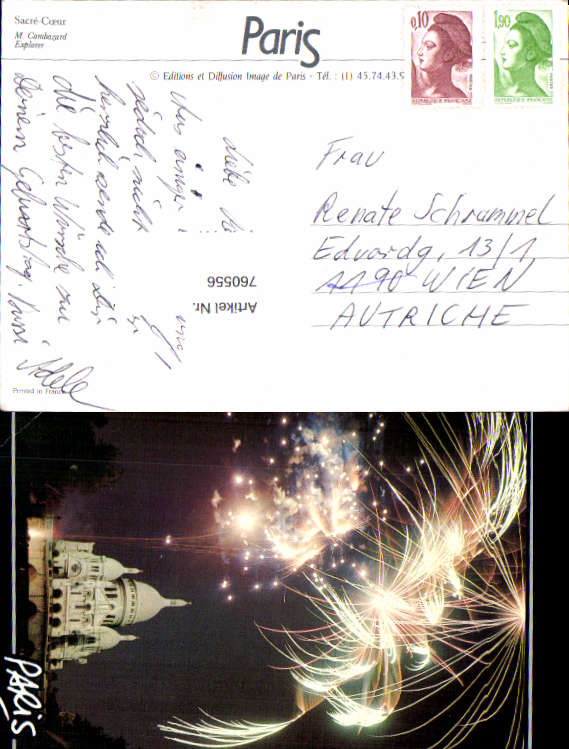 Sacré-Cœur
M. Cambazard
Explorer
Paris
© Editions et Diffusion Image de Paris - Tél. : (1) 45.74.43.9
0,10
REPUBLIQUE FRANÇAISE
1,90
REPUBLIQUE FRANÇAISE
Liebe
Aus
jedoch nicht
herzlich sende ich Dir
die besten Wünsche zum
Deinem Geburtstag. Bussi Adele
Frau
Renate Schrammel
Edvardg, 13/1
1190 WIEN
AUTRICHE
Artikel Nr.
760556
Printed in France
PARIS